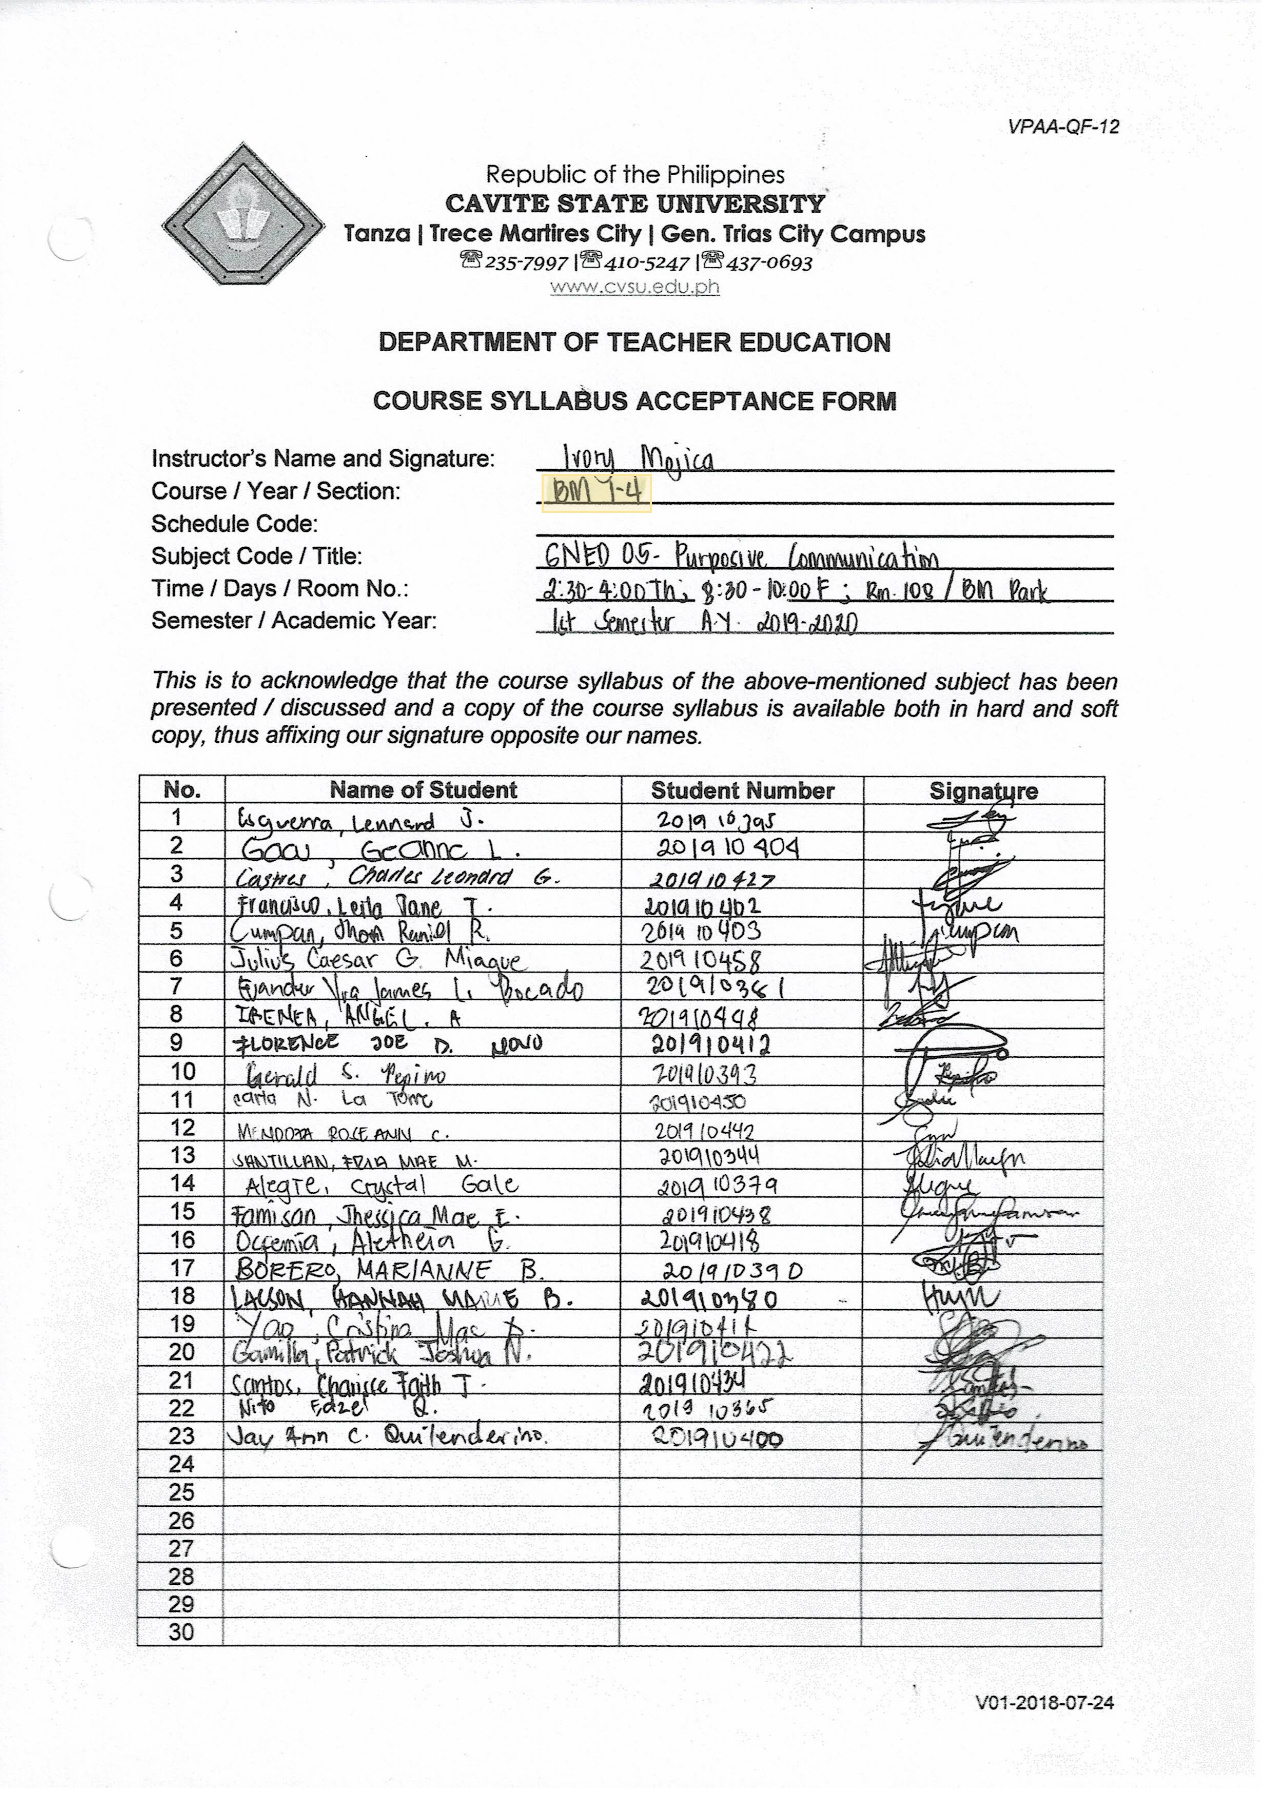 VPAA-QF-12
Republic of the Philippines
CAVITE STATE UNIVERSITY
Tanza | Trece Martires City | Gen. Trias City Campus
☏235-7997 |☏410-5247 |☏437-0693
www.cvsu.edu.ph
DEPARTMENT OF TEACHER EDUCATION
COURSE SYLLABUS ACCEPTANCE FORM
Instructor's Name and Signature: Ivory Mojica
Course / Year / Section: BM 1-4
Schedule Code:
Subject Code / Title: GNED 05- Purposive Communication
Time / Days / Room No.: 2:30-4:00 Th; 8:30-10:00 F; Rm. 108 / BM Park
Semester / Academic Year: 1st Semester A.Y. 2019-2020
This is to acknowledge that the course syllabus of the above-mentioned subject has been
presented / discussed and a copy of the course syllabus is available both in hard and soft
copy, thus affixing our signature opposite our names.
No. Name of Student Student Number Signature
1 Esguerra, Lennard J. 201910395
2 Geanne L. 201910404
3 Charles Leonard G. 201910427
4 Francisco, Leila Jane T. 201910402
5 Cumpan, Jhon Raniel R. 201910403
6 Julius Caesar G. Miague 201910458
7 James L. Bocado 201910361
8 IBENEA, ANGEL. A 201910448
9 FLORENCE JOE D. NOVO 201910412
10 Gerald S. Pepino 201910393
11 Carla N. La Torre 201910450
12 MENDOZA ROSE ANN C. 201910442
13 SANTILLAN, MAE M. 201910344
14 Alegre, Crystal Gale 201910379
15 Famisan, Jhessica Mae E. 201910438
16 Occemia, Aletheia G. 201910418
17 BORERO, MARIANNE B. 201910390
18 LACSON, HANNAH MARIE B. 201910380
19 Yao, Cristina Mae
20 Gamilla, Patrick Joshua N. 201910422
21 Santos, Charisse Faith T. 201910434 Santos
22 Nito Edzel Q. 201910365
23 Jay Ann C. Quitenderino. 201910400 Quitenderino
24
25
26
27
28
29
30
V01-2018-07-24